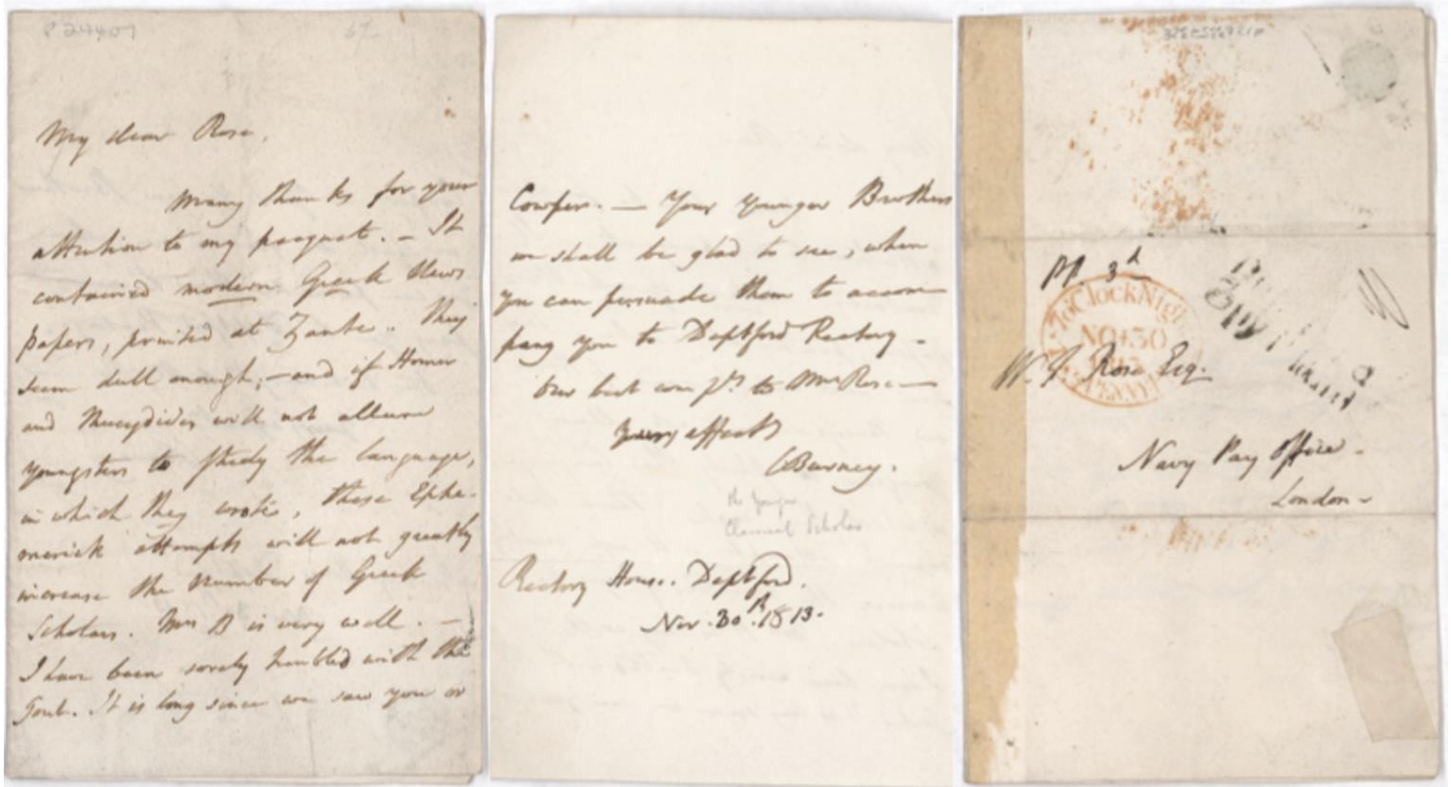 My dear Rose,
Many thanks for your
attention to my pacquet. – It
contained modern Greek News
papers, printed at Zante. They
seem dull enough; – and if Homer
and Thucydides will not allure
youngsters to study the language,
in which they wrote, these Ephe-
merick attempts will not greatly
increase the number of Greek
Scholars. Mrs B is very well. –
I have been sorely troubled with the
Gout. It is long since we saw you or
Cowper. – Your younger Brothers
we shall be glad to see, when
you can persuade them to accom
pany you to Deptford Rectory –
Our best compts. to Mrs Rose –
Yours affectly
CBurney.
the younger
Classical Scholar
Rectory House. Deptford.
Nov. 30th. 1813.
pp. 3d
7oClockNigh
NO 30
1813
W. F. Rose Esq.
Navy Pay Office.
London –